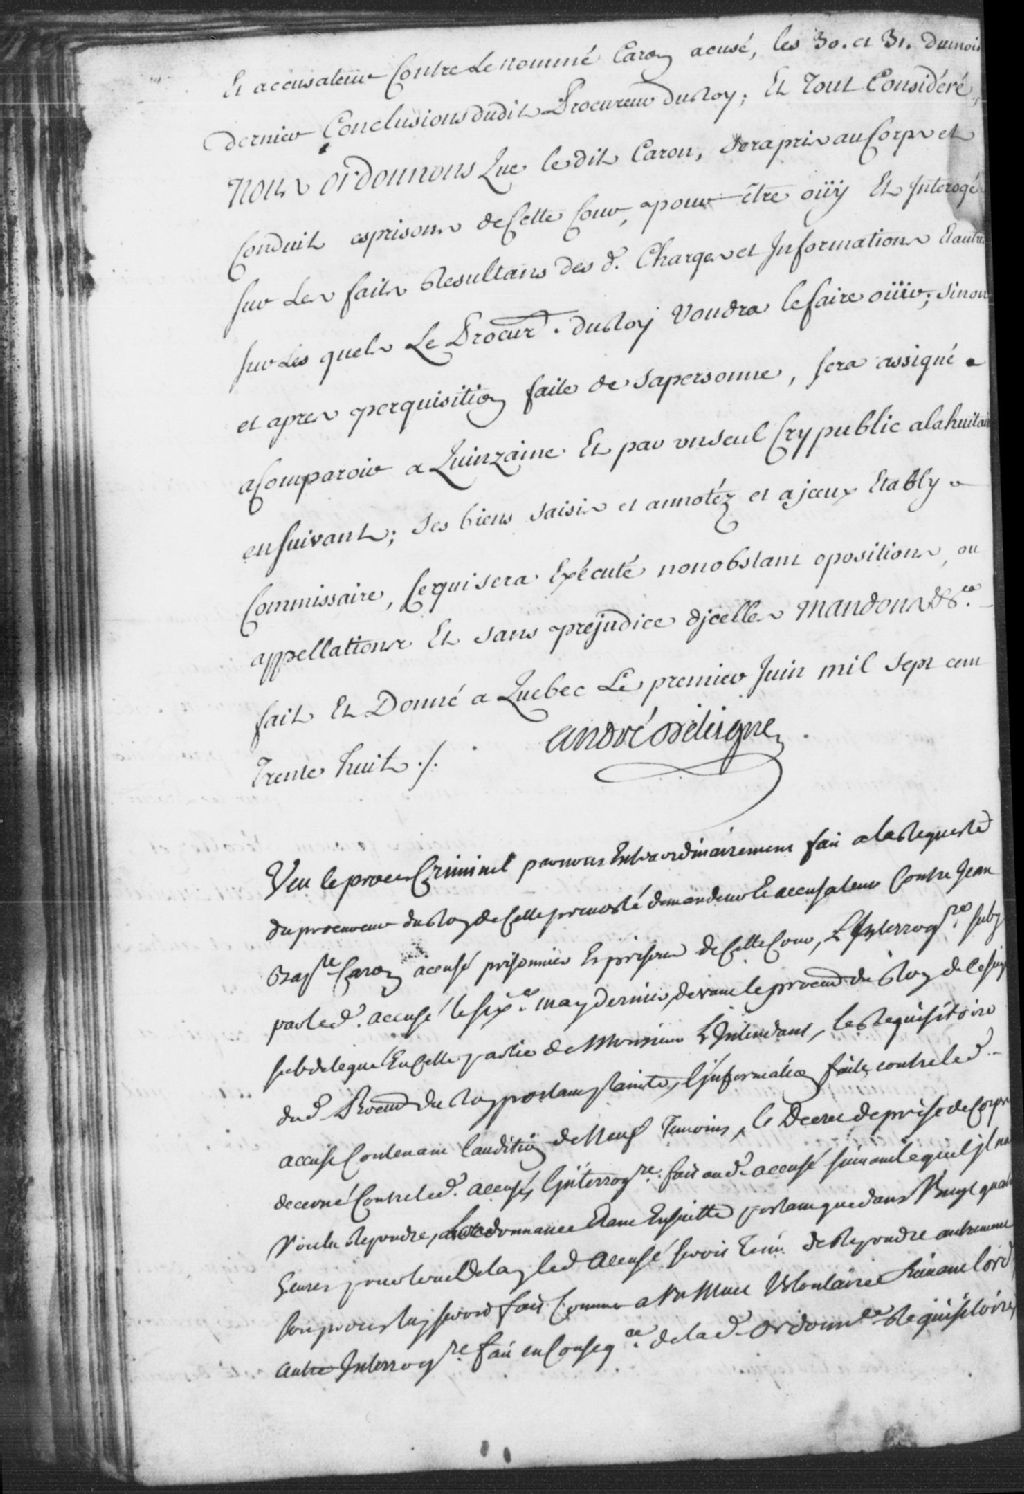 Et accusateur Contre Le nommé Caron acusé, les 30. et 31. du mois
dernier Conclusions dudit Procureur du Roy; Et Tout Considéré,
Nous ordonnons Que ledit Caron, sera pris au Corps et
Conduit es prisons de Cette Cour, pour être oüy Et Interogé
sur Les faits Resultans des d. Charges et Informations Et autres
sur Les quels Le Procur. du Roy Voudra le faire oüir; sinon
et apres perquisition faite de sa personne, sera assigné
a Comparoir a Quinzaine Et par un seul Cry public a la huitaine
ensuivant; ses biens saisis et annotéz et a jceux Etably
Commissaire, Ce qui sera Exécuté nonobstant opositions, ou
appellations Et sans prejudice d'jcelles Mandons &ca.
fait Et Donné a Quebec Le premier Juin mil sept cent
Trente huit ./.
André De Leigne
Veu le proces Criminel par nous Extraordinairement fait a la Requeste
du procureur du Roy de Cette prevosté demandeur Et accusateur Contre Jean
Bapte. Caron accusé prisonnier Es prisons de Cette Cour, L'Interrogre. suby
par le d. accusé le six. may dernier, devant le procur du Roy de
subdelegué En Cette partie de Monsieur L'Intendant, le Requisitoire
du d. Procur du Roy portant plainte, l'jnformation faite contre le d.
accusé Contenant l'audition de Neuf Temoins, le Decret de prise de Corps
decerné Contre le d. accusé, l'jnterrogre. fait au d. accusé suivant lequel jl na
Voulu Repondre, l'ordonnance Etant Ensuitte portant que dans Vingt quatre
heures pour tout delay led accusé seroit Tenu de Repondre autrement
son proces luy seroit fait Comme a Un Muet Volontaire suivant l'ord
autre Interrogre. fait en Conseqce. de la d. ordonnce. Requisitoire